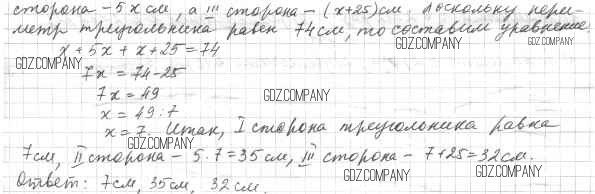 сторона - 5x см, а III сторона - (x+25) см. Поскольку пери-
метр треугольника равен 74 см, то составим уравнение:
GDZ.COMPANY GDZ.COMPANY
x + 5x + x + 25 = 74
GDZ.COMPANY
7x = 74-25
7x = 49
GDZ.COMPANY
x = 49 : 7
x = 7. Итак, I сторона треугольника равна
GDZ.COMPANY
7 см, II сторона - 5·7 = 35 см, III сторона - 7+25 = 32 см.
GDZ.COMPANY GDZ.COMPANY
Ответ: 7 см, 35 см, 32 см.